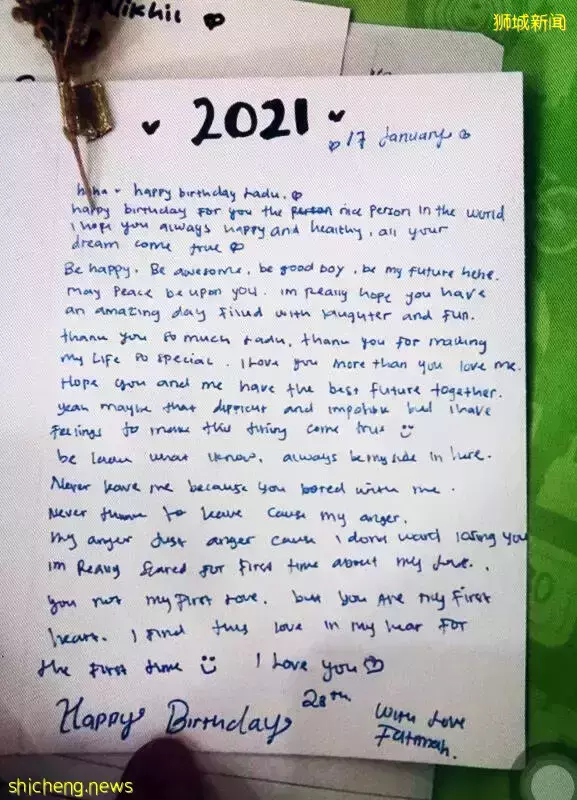 Nikhil
狮城新闻
2021
17 January
haha - happy birthday ladu.
happy birthday for you the person nice person in the world
I hope you always happy and healthy, all your
dream come true
Be happy. Be awesome. be good boy. be my future hehe.
may peace be upon you. im really hope you have
an amazing day filled with laughter and fun.
thank you so much ladu, thank you for making
my life so special. I love you more than you love me.
Hope you and me have the best future together.
yeah maybe that difficult and but I have
feelings to make this thing come true
be what I know. always be my side in here.
Never leave me because you bored with me.
Never to leave cause my anger.
my anger just anger cause I losing you
im Really Scared for first time about my love..
you not my first love. but you are my first
heart. I find this love in my hear for
the first time I love you
Happy Birthday
28th
With love
Fatimah.
shicheng.news